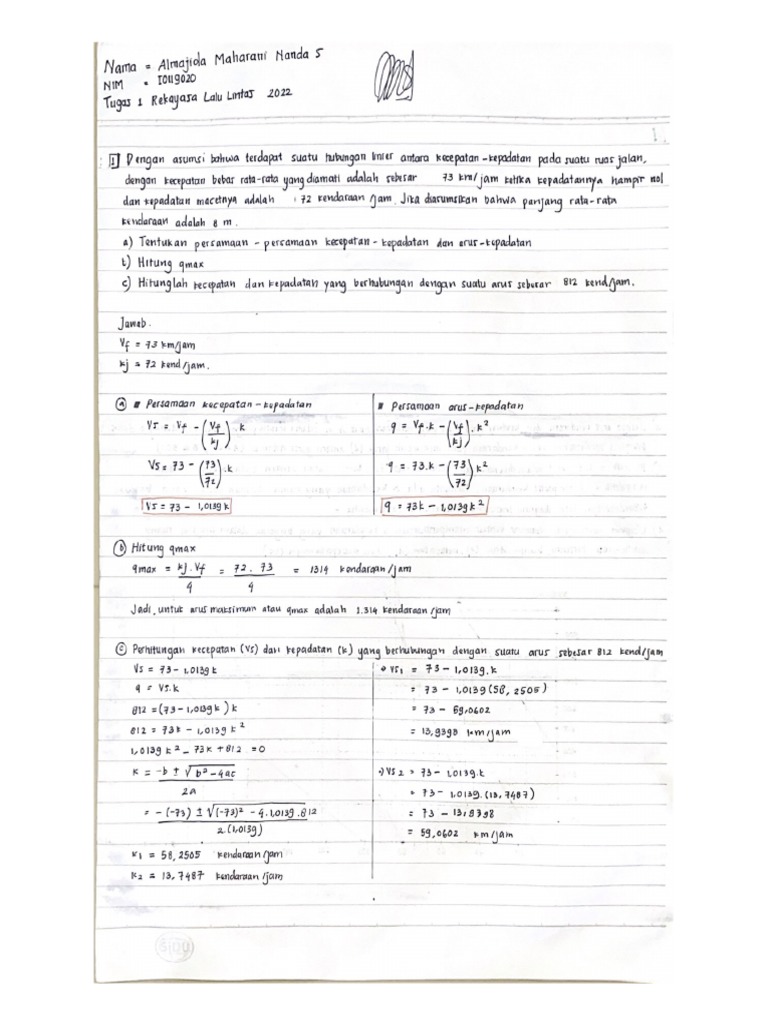 Nama = Almajida Maharani Nanda S
NIM = I0119020
Tugas 1 Rekayasa Lalu Lintas 2022
1. Dengan asumsi bahwa terdapat suatu hubungan linier antara kecepatan-kepadatan pada suatu ruas jalan,
dengan kecepatan bebas rata-rata yang diamati adalah sebesar 73 km/jam ketika kepadatannya hampir nol
dan kepadatan macetnya adalah 72 kendaraan/jam. Jika diasumsikan bahwa panjang rata-rata
kendaraan adalah 8 m.
a) Tentukan persamaan-persamaan kecepatan-kepadatan dan arus-kepadatan
b) Hitung qmax
c) Hitunglah kecepatan dan kepadatan yang berhubungan dengan suatu arus sebesar 812 kend/jam.
Jawab.
Vf = 73 km/jam
kj = 72 kend/jam.
(a) Persamaan kecepatan-kepadatan
Vs = Vf - (Vf/kj).k
Vs = 73 - (73/72).k
Vs = 73 - 1,0139k
Persamaan arus-kepadatan
q = Vf.k - (Vf/kj).k²
q = 73.k - (73/72)k²
q = 73k - 1,0139k²
(b) Hitung qmax
qmax = kj.Vf/4 = 72.73/4 = 1314 kendaraan/jam
Jadi, untuk arus maksimum atau qmax adalah 1.314 kendaraan/jam
(c) Perhitungan kecepatan (Vs) dan kepadatan (k) yang berhubungan dengan suatu arus sebesar 812 kend/jam
Vs = 73-1,0139k
q = Vs.k
812 = (73-1,0139k)k
812 = 73k - 1,0139k²
1,0139k² - 73k + 812 = 0
k = -b ± √b²-4ac / 2a
= -(-73) ± √(-73)² - 4.1,0139.812 / 2(1,0139)
k1 = 58,2505 kendaraan/jam
k2 = 13,7487 kendaraan/jam
Vs1 = 73 - 1,0139.k
= 73 - 1,0139(58,2505)
= 73 - 59,0602
= 13,9398 km/jam
Vs2 = 73-1,0139.k
= 73-1,0139.(13,7487)
= 73 - 13,9398
= 59,0602 km/jam